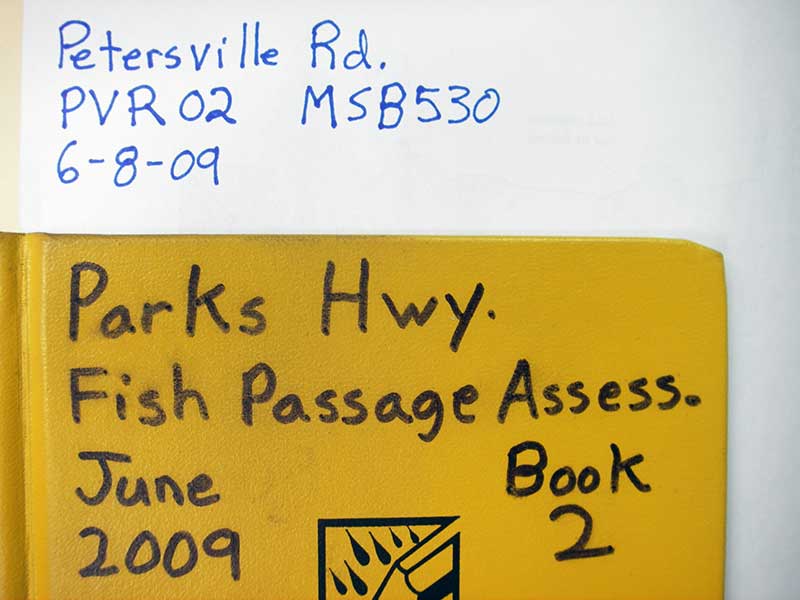 Petersville Rd.
PVR02 MSB530
6-8-09
Parks Hwy.
Fish Passage Assess.
June Book
2009 2